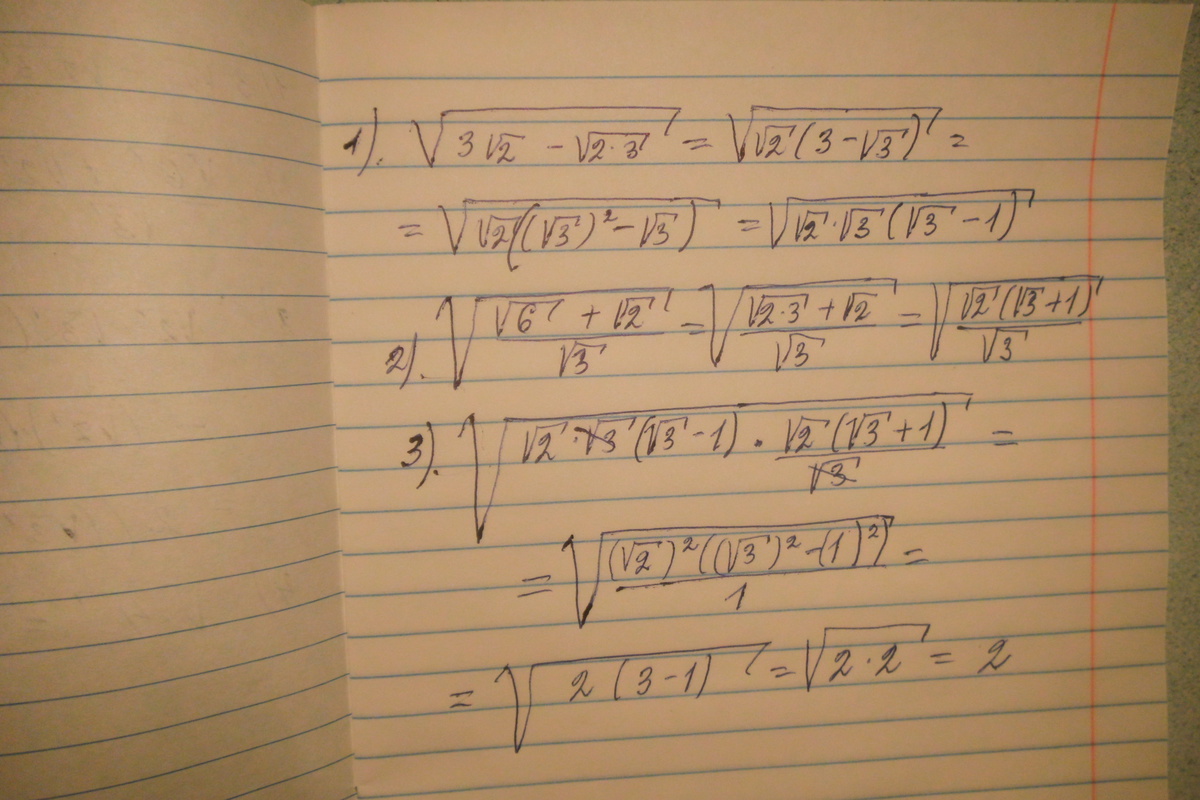 1). √(3√2 - √(2·3)) = √(√2(3-√3)) =
= √(√2((√3)²-√3)) = √(√2·√3(√3-1))
2). √((√6+√2)/√3) = √((√(2·3)+√2)/√3) = √((√2(√3+1))/√3)
3). √(√2·√3(√3-1) · (√2(√3+1))/√3) =
= √(((√2)²((√3)²-(1)²))/1) =
= √(2(3-1)) = √(2·2) = 2